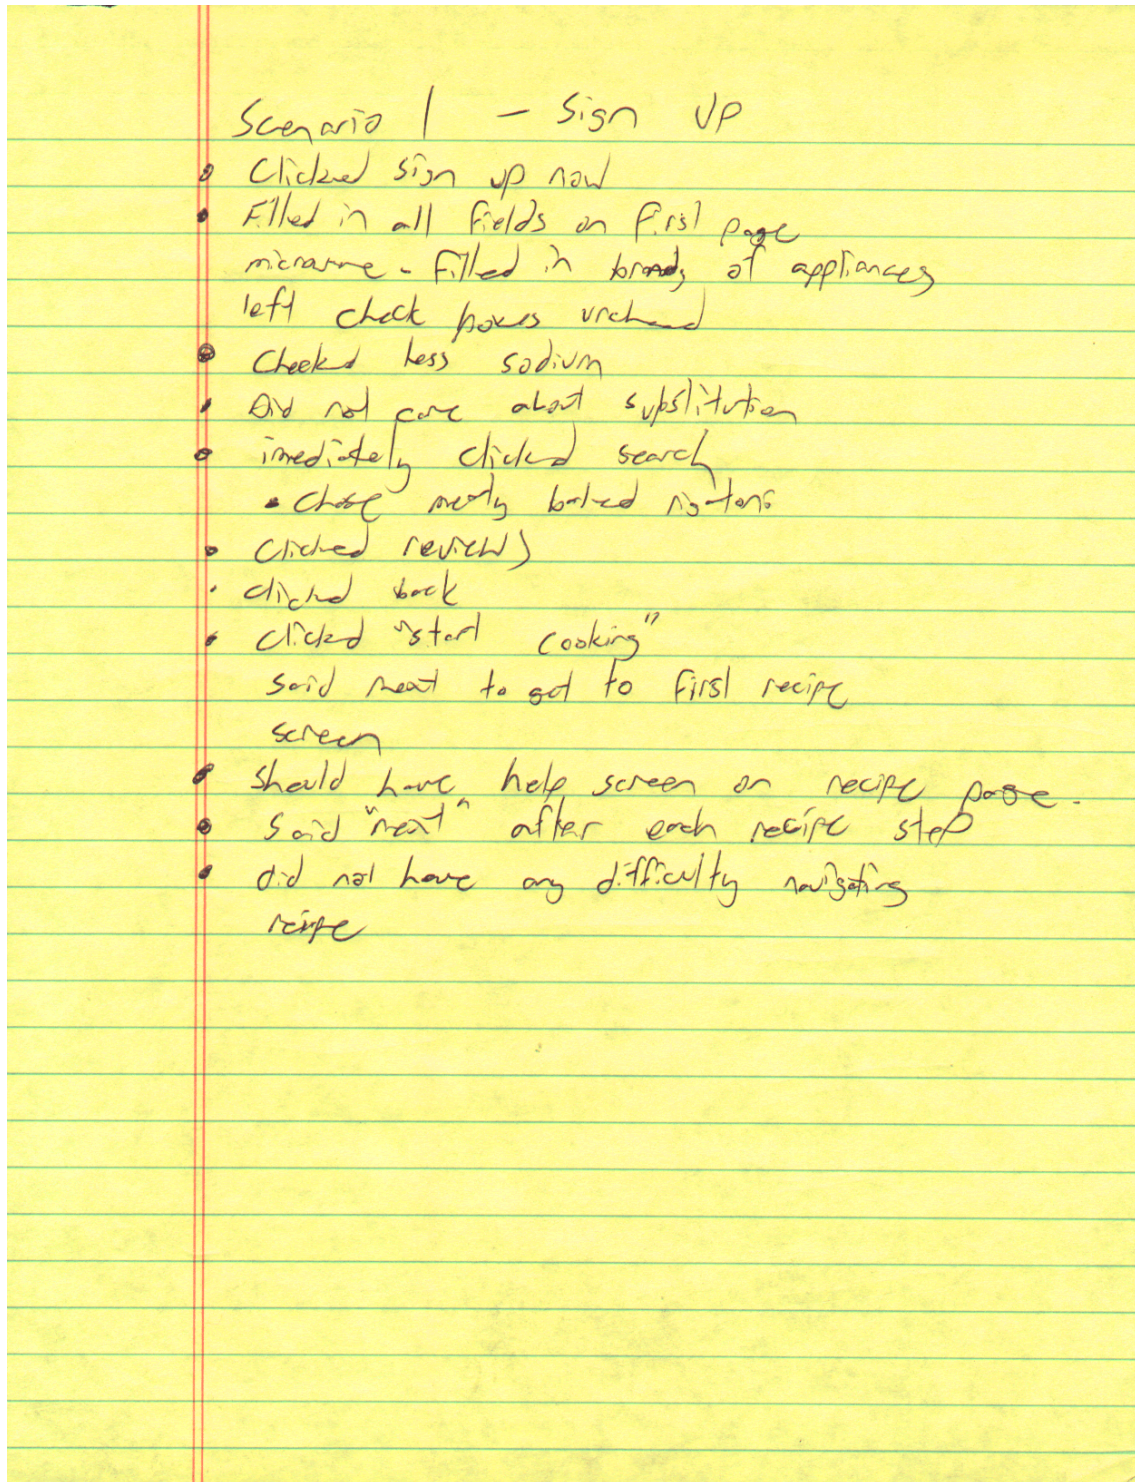 Scenario 1 - Sign up
• Clicked sign up now
• Filled in all fields on first page
microwave - filled in brands of appliances
left check boxes
• Checked less sodium
• Did not care about substitution
• imediately clicked search
• Chose meaty baked rigatoni
• Clicked reviews
• clicked back
• clicked "start cooking"
said next to get to first recipe
screen
• Should have help screen on recipe page.
• Said "next" after each recipe step
• did not have any difficulty navigating
recipe